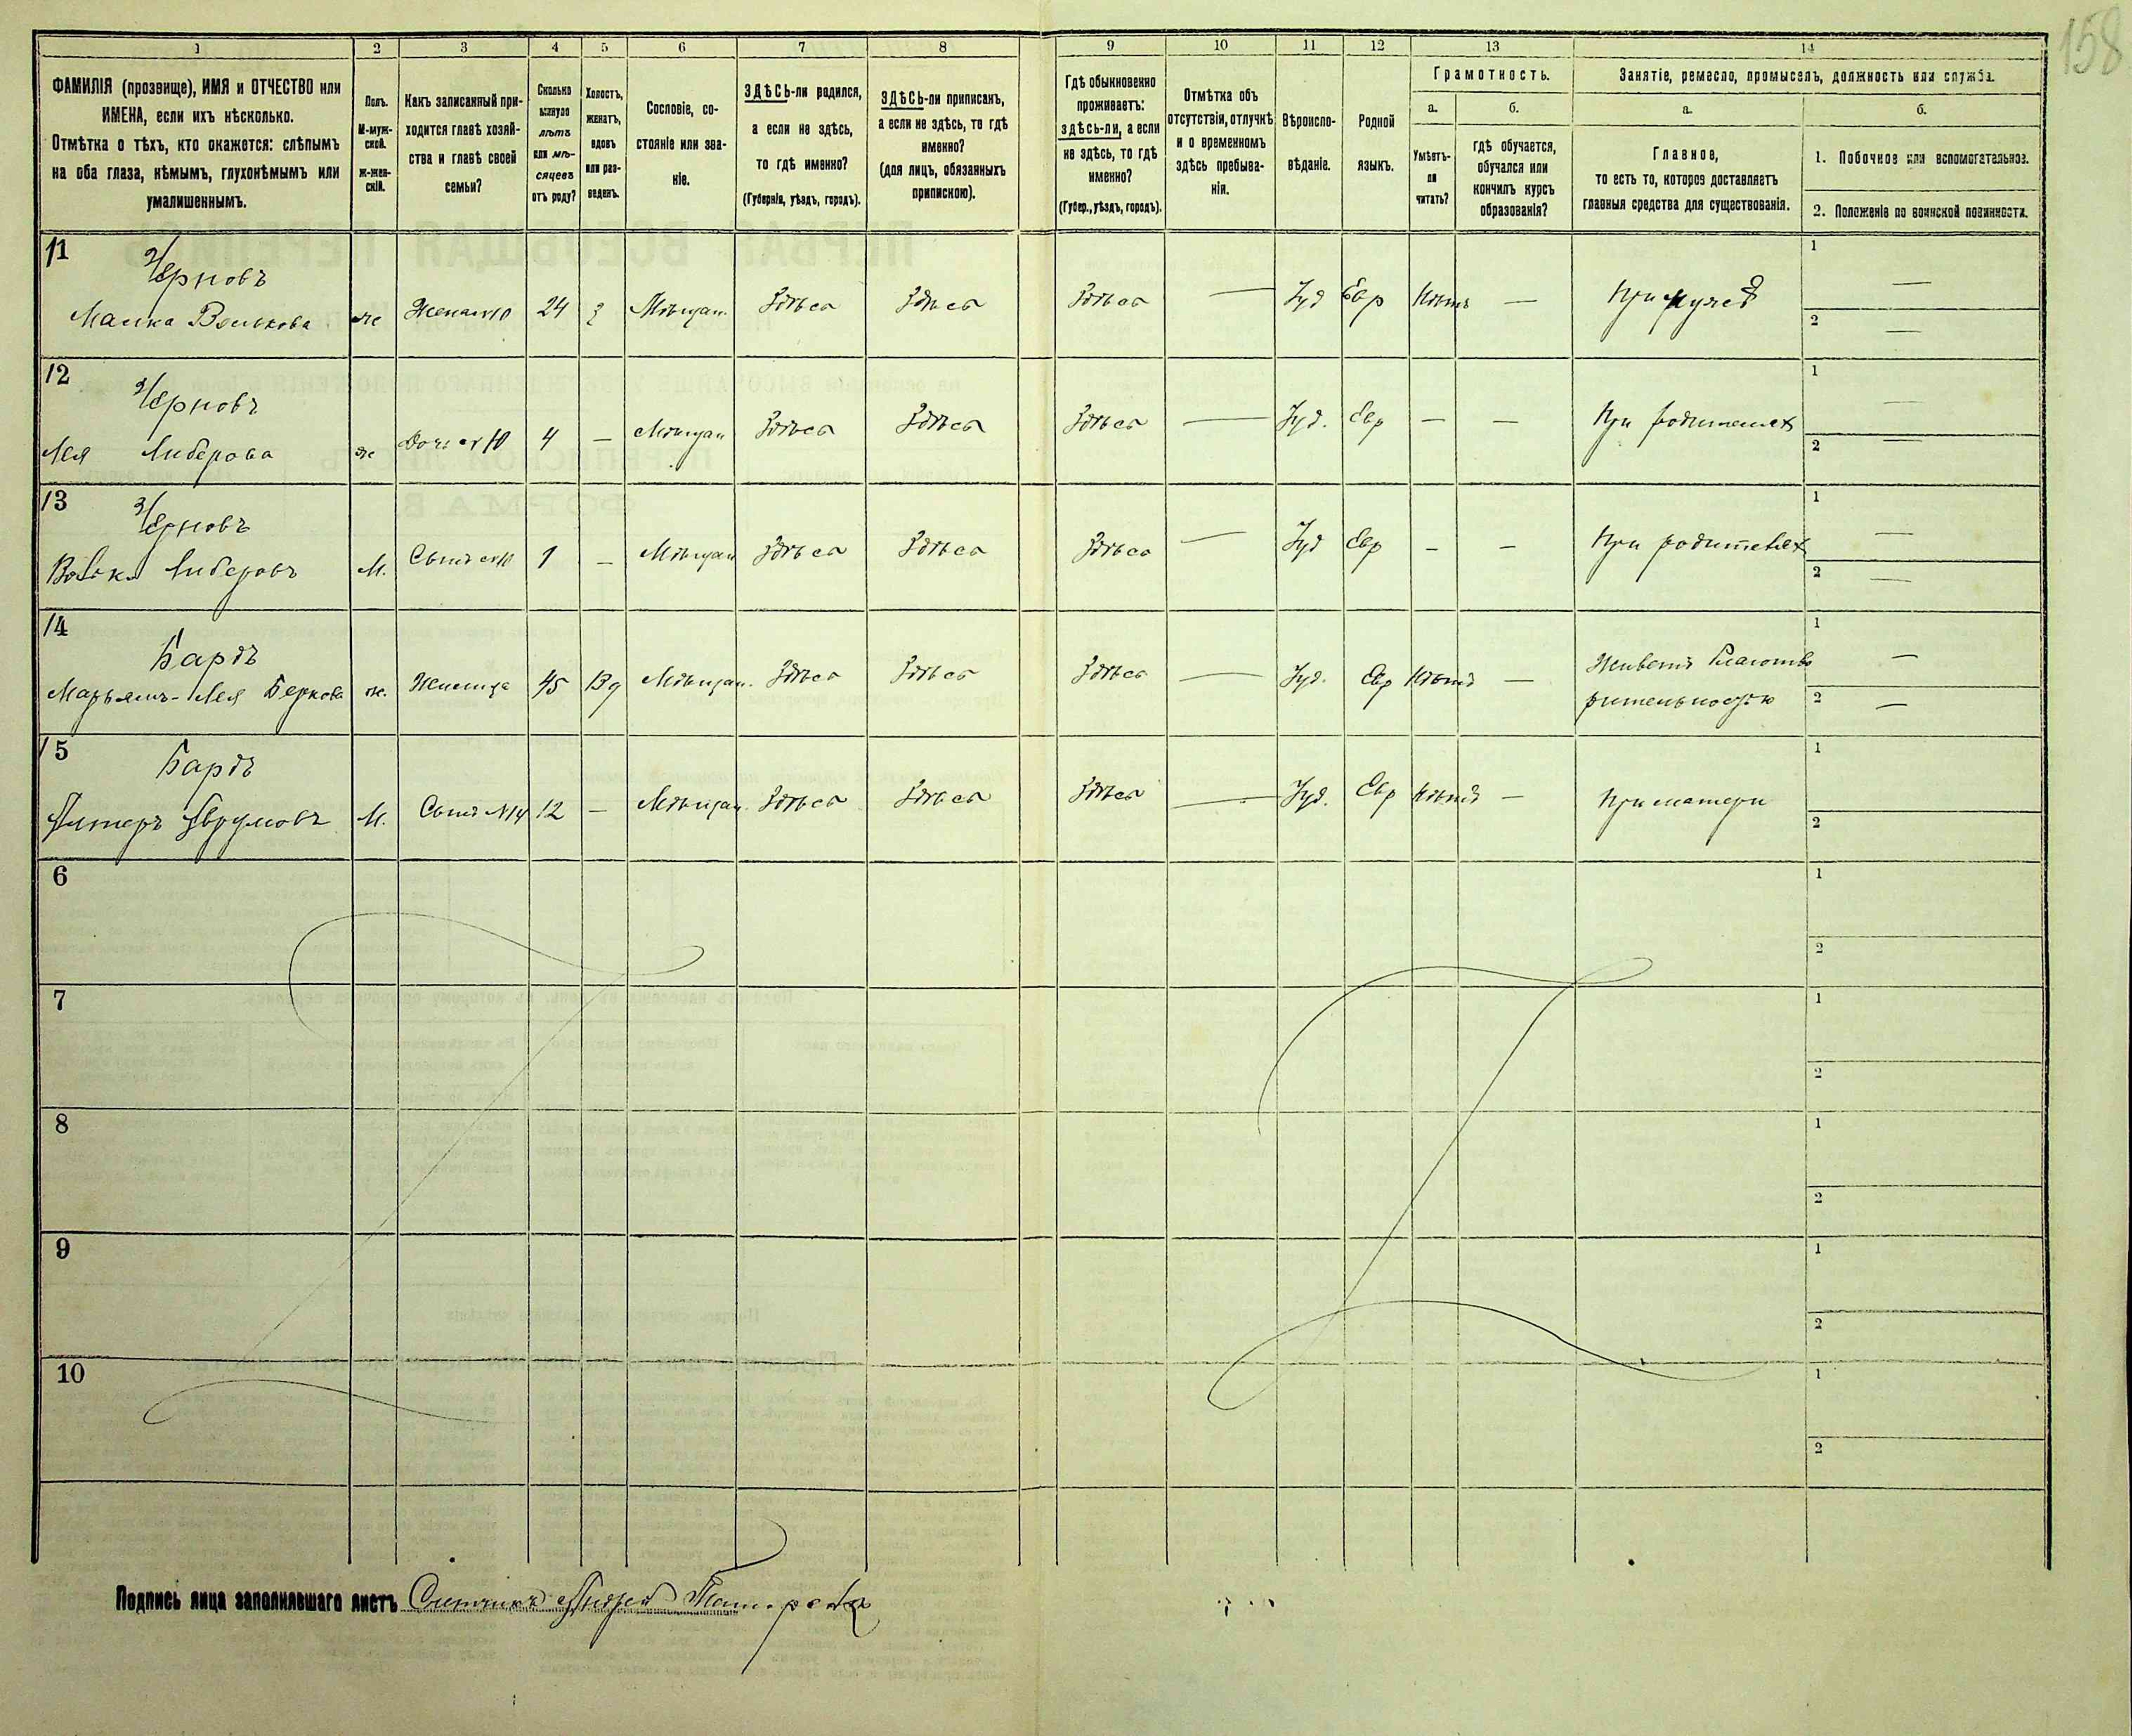 158
1 2 3 4 5 6 7 8 9 10 11 12 13 14
ФАМИЛІЯ (прозвище), ИМЯ и ОТЧЕСТВО или
ИМЕНА, если ихъ нѣсколько.
Отмѣтка о тѣхъ, кто окажется: слѣпымъ
на оба глаза, нѣмымъ, глухонѣмымъ или
умалишеннымъ.
Полъ.
М-муж-
ской.
Ж-жен-
скій.
Какъ записанный при-
ходится главѣ хозяй-
ства и главѣ своей
семьи?
Сколько
минуло
лѣтъ
или мѣ-
сяцевъ
отъ роду?
Холостъ,
женатъ,
вдовъ
или раз-
веденъ.
Сословіе, со-
стояніе или зва-
ніе.
ЗДѢСЬ-ли родился,
а если не здѣсь,
то гдѣ именно?
(Губернія, уѣздъ, городъ).
ЗДѢСЬ-ли приписанъ,
а если не здѣсь, то гдѣ
именно?
(для лицъ, обязанныхъ
припискою).
Гдѣ обыкновенно
проживаетъ:
здѣсь-ли, а если
не здѣсь, то гдѣ
именно?
(Губер., уѣздъ, городъ).
Отмѣтка объ
отсутствіи, отлучкѣ
и о временномъ
здѣсь пребыва-
ніи.
Вѣроиспо-
вѣданіе.
Родной
языкъ.
Грамотность.
а.
Умѣетъ-
ли
читать?
б.
гдѣ обучается,
обучался или
кончилъ курсъ
образованія?
Занятіе, ремесло, промыселъ, должность или служба.
а.
Главное,
то есть то, которое доставляетъ
главныя средства для существованія.
б.
1. Побочное или вспомогательное.
2. Положеніе по воинской повинности.
11 Черновъ
Малка Волькова ж 24 з Мѣщан. Здѣсь Здѣсь Здѣсь — Іуд Евр Нѣтъ — При мужѣ 1 — 2 —
12 Черновъ
Лея Либерова ж Дочь 4 — Мѣщан Здѣсь Здѣсь Здѣсь — Іуд. Евр — — При родителях 1 — 2 —
13 Черновъ
Волька Либеровъ М. Сынъ 1 — Мѣщан Здѣсь Здѣсь Здѣсь — Іуд Евр — — При родителях 1 — 2 —
14 Бардъ
Марьямъ-Лея Беркова ж. Жилица 45 Вд Мѣщан. Здѣсь Здѣсь Здѣсь — Іуд. Евр Нѣтъ — Живетъ благотво
рительностью 1 — 2 —
15 Бардъ
Алтеръ Аврумовъ М. Сынъ №14 12 — Мѣщан. Здѣсь Здѣсь Здѣсь — Іуд. Евр Нѣтъ — При матери 1 2
6 1 2
7 1 2
8 1 2
9 1 2
10 1 2
Подпись лица заполнявшаго листъ Счетчикъ Андрей